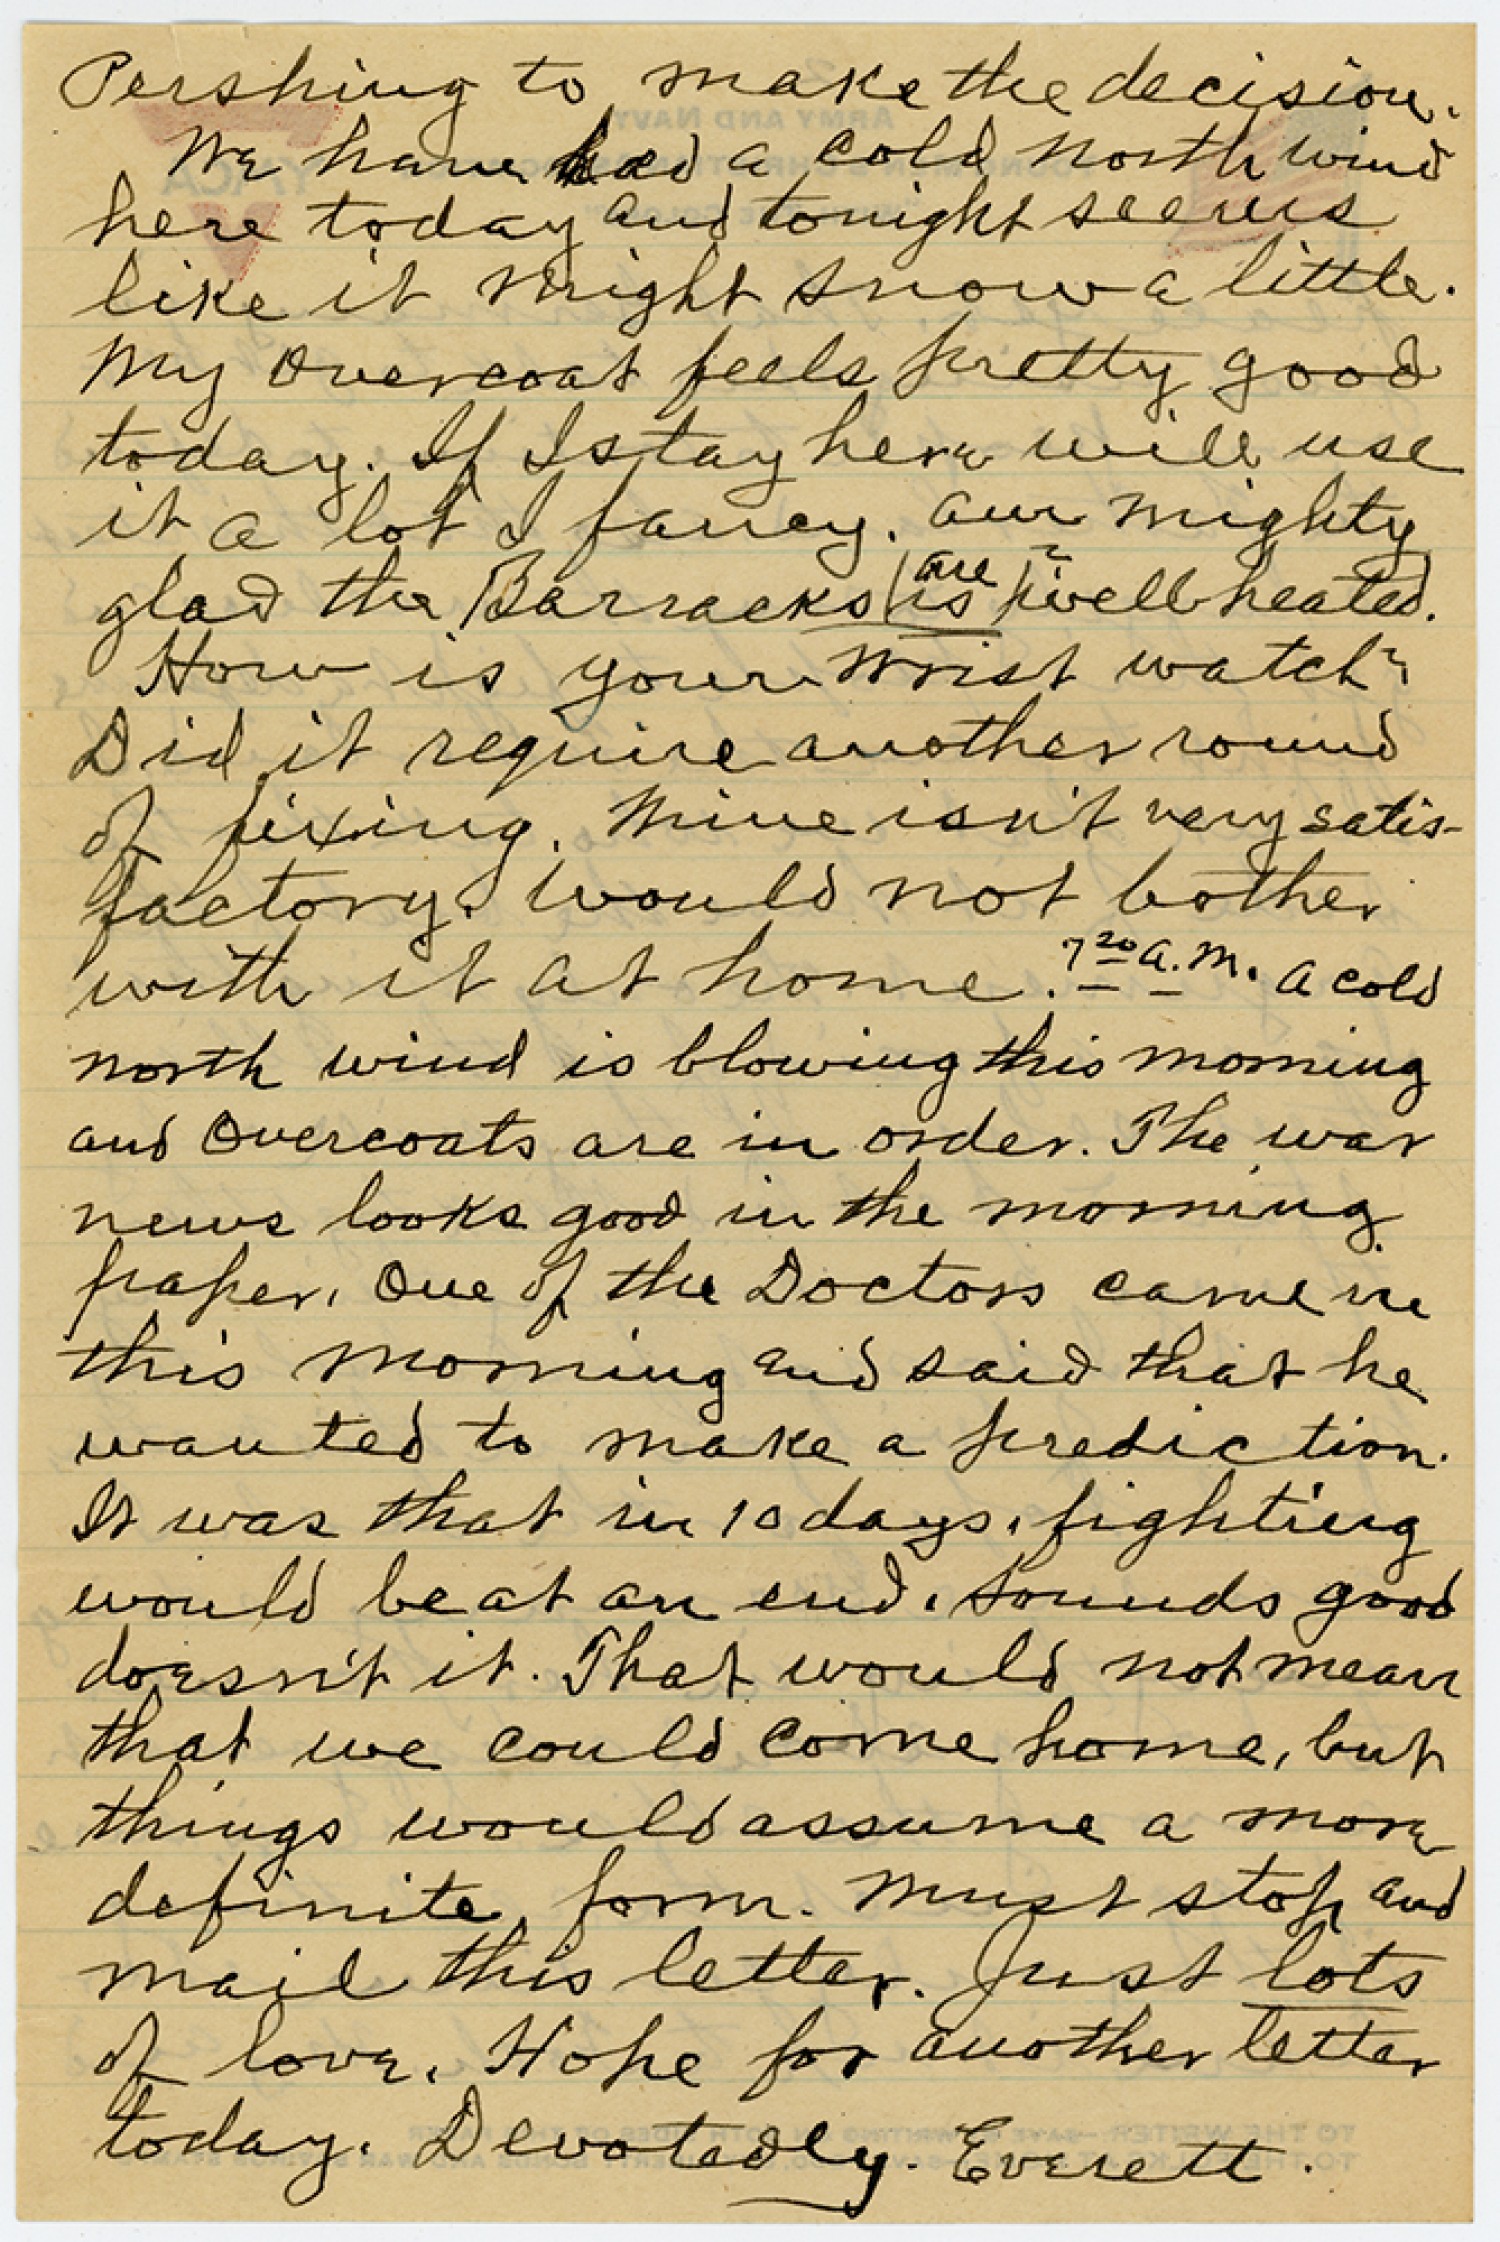 Pershing to make the decision.
We have had a cold north wind
here today and tonight seems
like it might snow a little.
My Overcoat feels pretty good
today. If I stay here will use
it a lot I fancy. Am mighty
glad the Barracks (are ?
is) well heated.
How is your wrist watch?
Did it require another round
of fixing. Mine isn't very satis-
factory. Would not bother
with it at home. 7 20 A.M. A cold
north wind is blowing this morning
and Overcoats are in order. The war
news looks good in the morning
paper. One of the Doctors came in
this morning and said that he
wanted to make a prediction.
It was that in 10 days, fighting
would be at an end. Sounds good
doesn't it. That would not mean
that we could come home, but
things would assume a more
definite form. Must stop and
mail this letter. Just lots
of love. Hope for another letter
today. Devotedly. Everett.